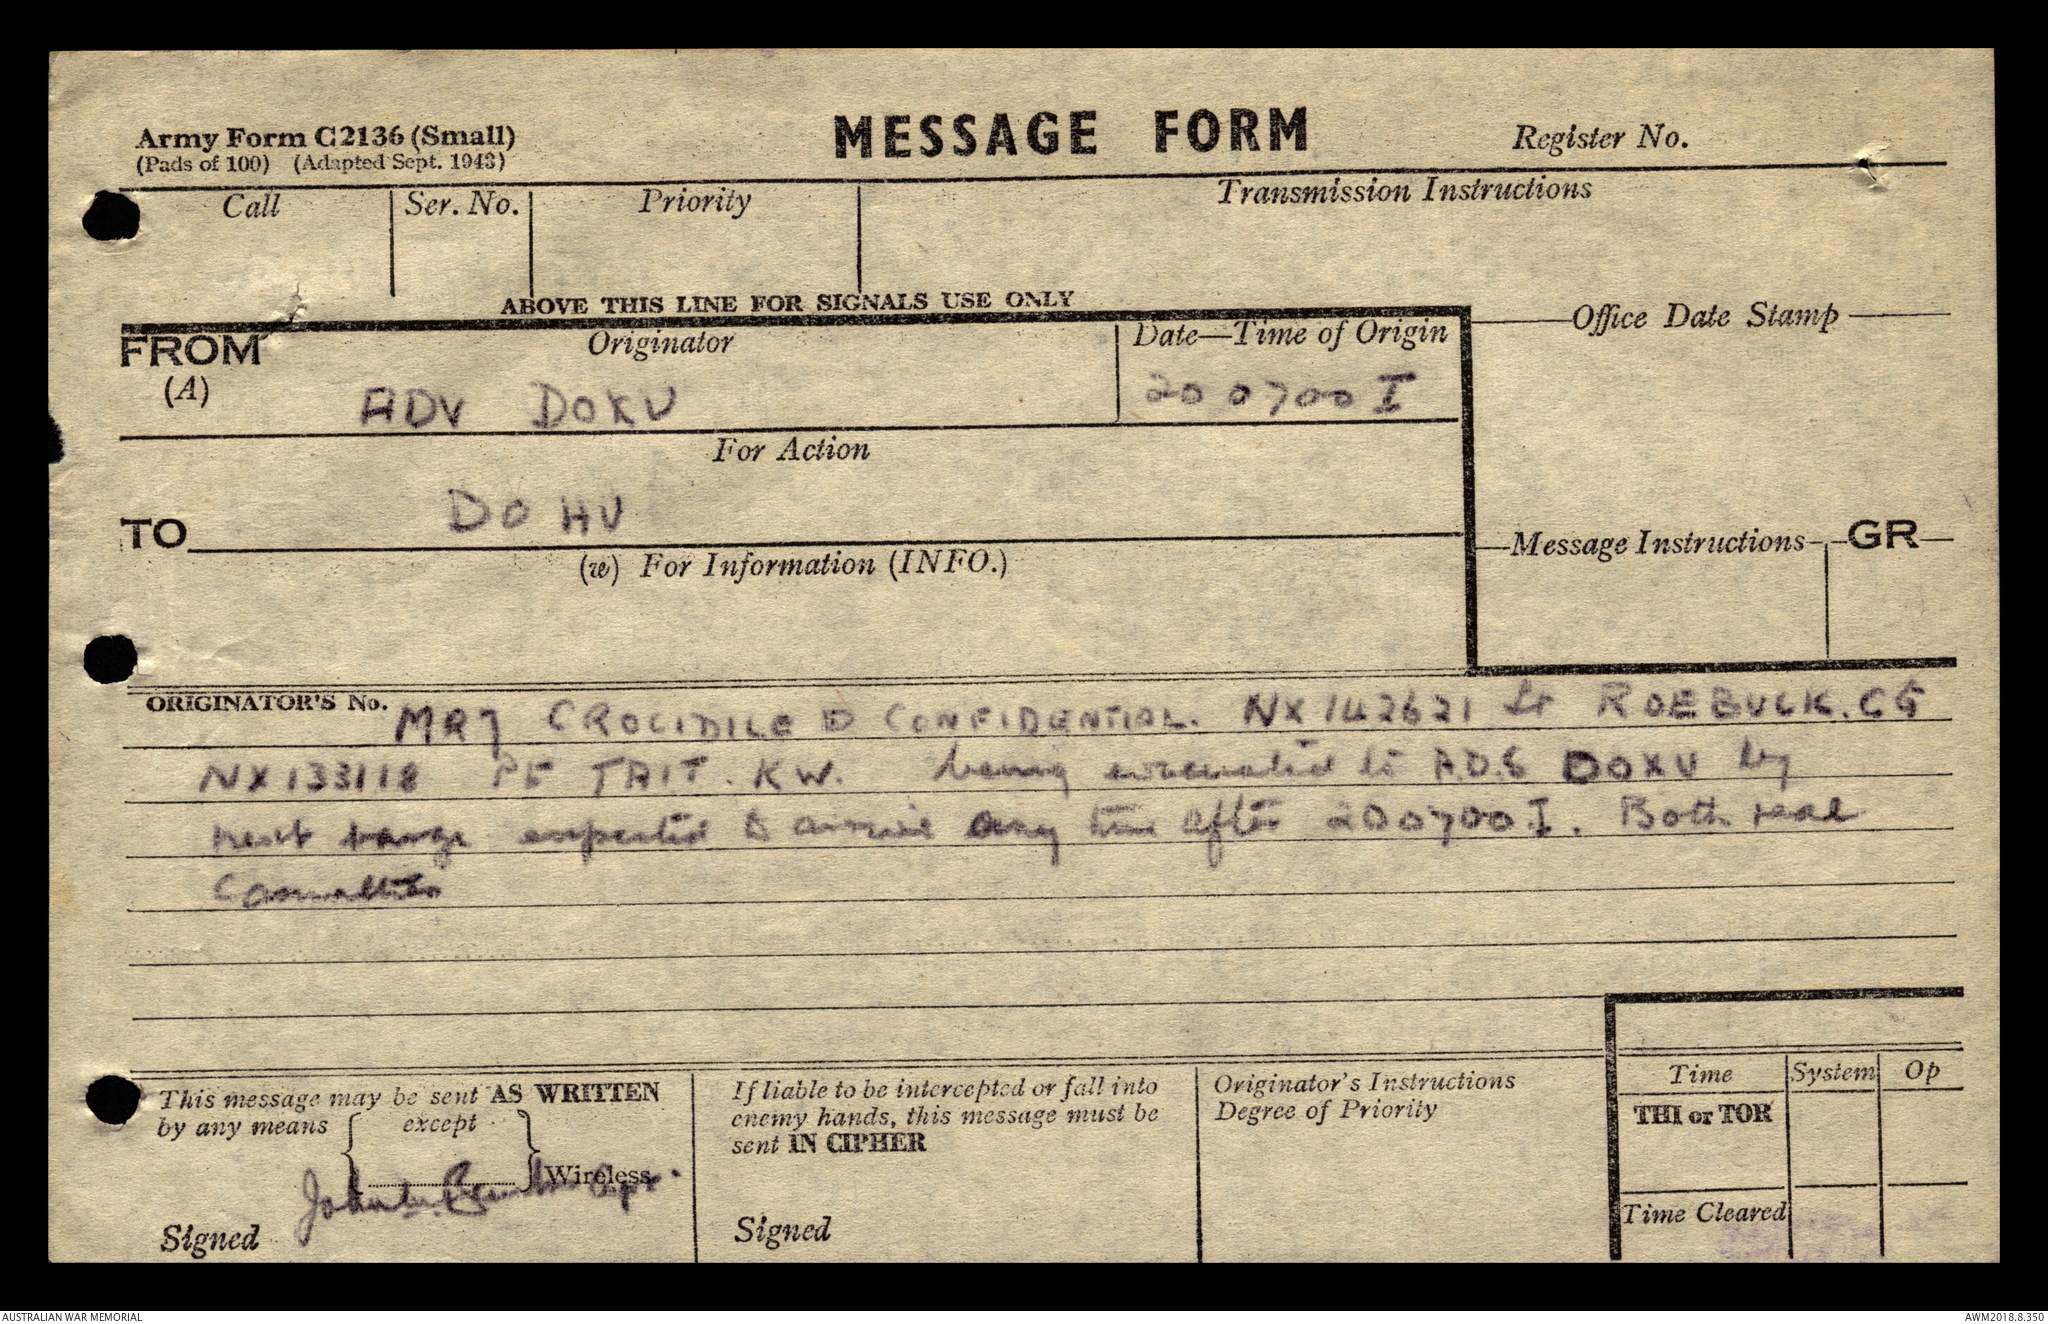 Army Form C2136 (Small)
(Pads of 100) (Adapted Sept. 1943)
MESSAGE FORM
Register No.
Call
Ser. No.
Priority
Transmission Instructions
ABOVE THIS LINE FOR SIGNALS USE ONLY
FROM
(A)
Originator
ADV DOKU
Date—Time of Origin
200700 I
Office Date Stamp
For Action
TO
DOHU
(w) For Information (INFO.)
Message Instructions
GR
ORIGINATOR'S No.
MR7 CONFIDENTIAL. NX142621 Lt ROEBUCK. CG
NX133118 PE TAIT. KW. being evacuated to ADS DOXU by
next barge expected to arrive any time after 200700I. Both real
Casualties
This message may be sent AS WRITTEN
by any means
except
Wireless
Signed
John Capt.
If liable to be intercepted or fall into
enemy hands, this message must be
sent IN CIPHER
Signed
Originator's Instructions
Degree of Priority
Time
System
Op
THI or TOR
Time Cleared
AUSTRALIAN WAR MEMORIAL
AWM2018.8.350